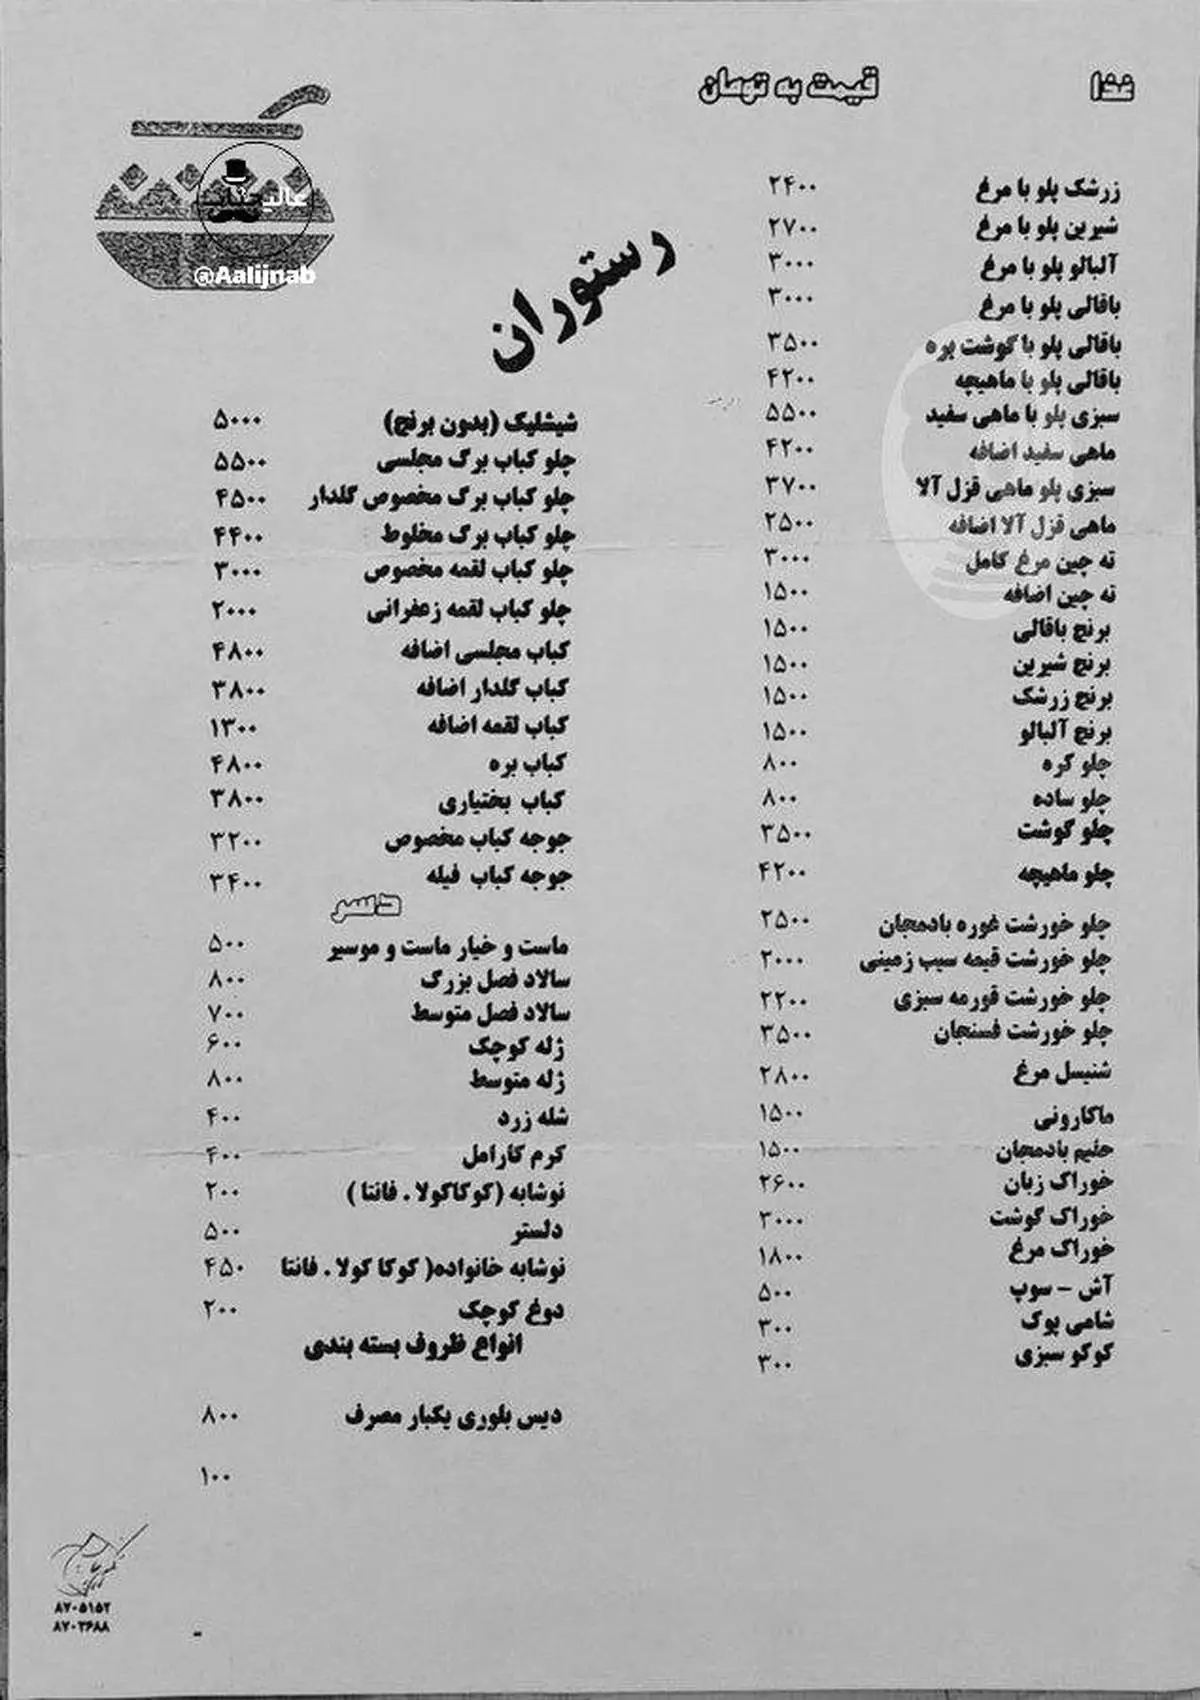 غذا قیمت به تومان
زرشک پلو با مرغ ۲۴۰۰
شیرین پلو با مرغ ۲۷۰۰
آلبالو پلو با مرغ ۳۰۰۰
باقالی پلو با مرغ ۳۰۰۰
باقالی پلو با گوشت بره ۳۵۰۰
باقالی پلو با ماهیچه ۴۲۰۰
سبزی پلو با ماهی سفید ۵۵۰۰
ماهی سفید اضافه ۴۲۰۰
سبزی پلو ماهی قزل آلا ۳۷۰۰
ماهی قزل آلا اضافه ۲۵۰۰
ته چین مرغ کامل ۳۰۰۰
ته چین اضافه ۱۵۰۰
برنج باقالی ۱۵۰۰
برنج شیرین ۱۵۰۰
برنج زرشک ۱۵۰۰
برنج آلبالو ۱۵۰۰
چلو کره ۸۰۰
چلو ساده ۸۰۰
چلو گوشت ۳۵۰۰
چلو ماهیچه ۴۲۰۰
چلو خورشت غوره بادمجان ۲۵۰۰
چلو خورشت قیمه سیب زمینی ۲۰۰۰
چلو خورشت قورمه سبزی ۲۲۰۰
چلو خورشت فسنجان ۳۵۰۰
شنیسل مرغ ۲۸۰۰
ماکارونی ۱۵۰۰
حلیم بادمجان ۱۵۰۰
خوراک زبان ۲۶۰۰
خوراک گوشت ۳۰۰۰
خوراک مرغ ۱۸۰۰
آش - سوپ ۵۰۰
شامی پوک ۳۰۰
کوکو سبزی ۳۰۰
رستوران
عالیجناب
@Aalijnab
شیشلیک (بدون برنج) ۵۰۰۰
چلو کباب برگ مجلسی ۵۵۰۰
چلو کباب برگ مخصوص گلدار ۴۵۰۰
چلو کباب برگ مخلوط ۴۴۰۰
چلو کباب لقمه مخصوص ۳۰۰۰
چلو کباب لقمه زعفرانی ۲۰۰۰
کباب مجلسی اضافه ۴۸۰۰
کباب گلدار اضافه ۳۸۰۰
کباب لقمه اضافه ۱۳۰۰
کباب بره ۴۸۰۰
کباب بختیاری ۳۸۰۰
جوجه کباب مخصوص ۳۲۰۰
جوجه کباب فیله ۳۴۰۰
دسر
ماست و خیار ماست و موسیر ۵۰۰
سالاد فصل بزرگ ۸۰۰
سالاد فصل متوسط ۷۰۰
ژله کوچک ۶۰۰
ژله متوسط ۸۰۰
شله زرد ۴۰۰
کرم کارامل ۴۰۰
نوشابه (کوکاکولا . فانتا ) ۲۰۰
دلستر ۵۰۰
نوشابه خانواده( کوکا کولا . فانتا ۴۵۰
دوغ کوچک ۲۰۰
انواع ظروف بسته بندی
دیس بلوری یکبار مصرف ۸۰۰
۱۰۰
۸۷۰۵۱۵۲
۸۷۰۳۶۸۸